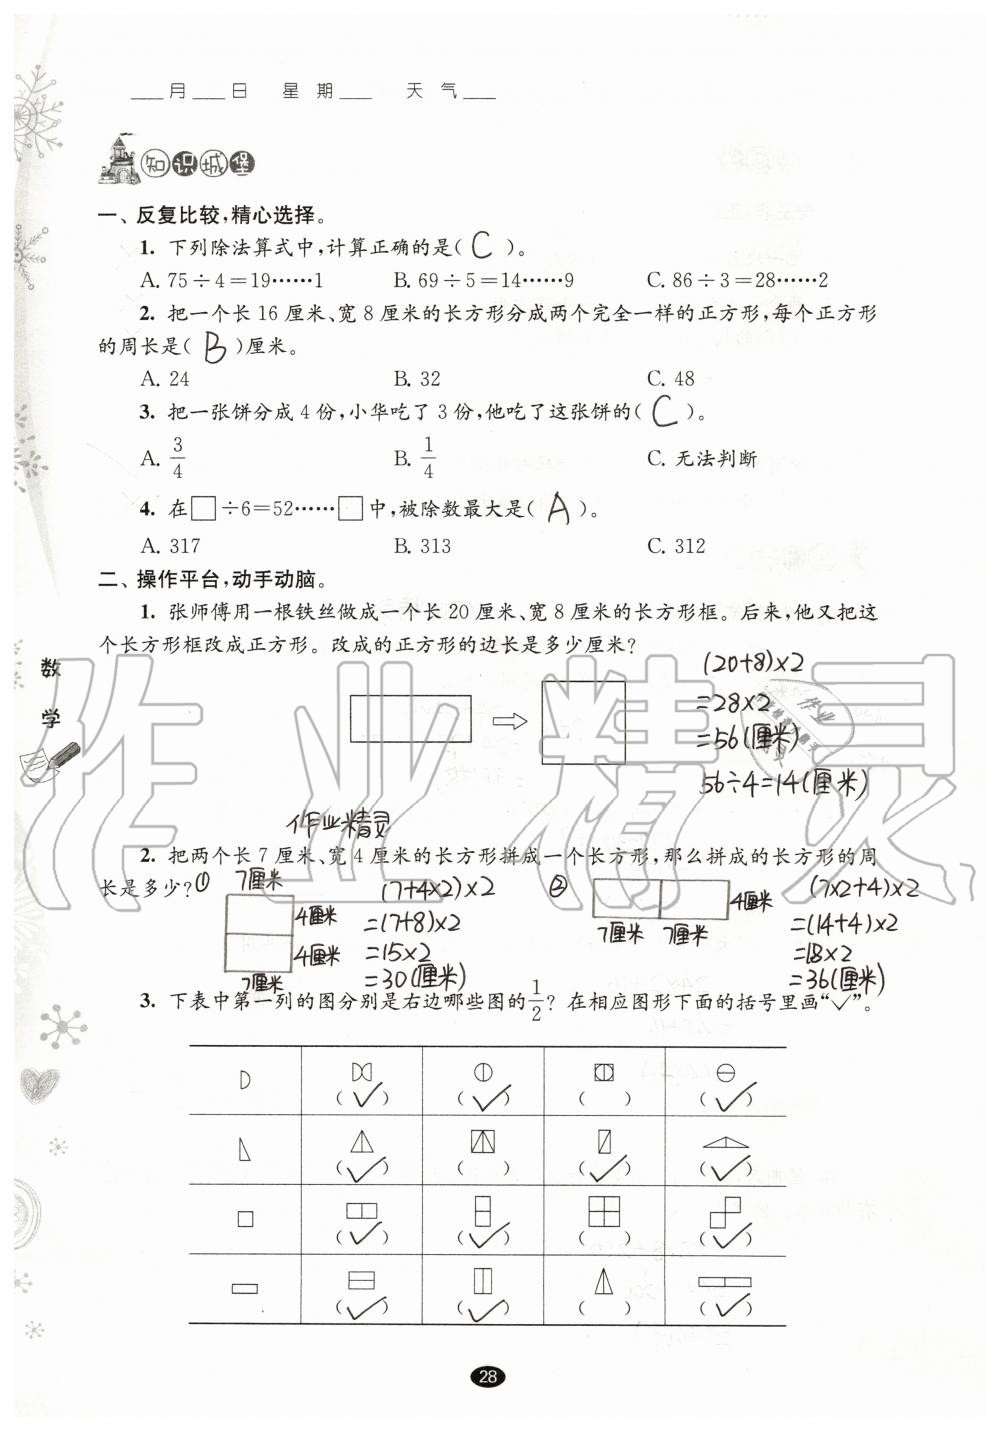 ____月____日  星期____  天气____
知识城堡
一、反复比较,精心选择。
1. 下列除法算式中,计算正确的是( C )。
A. 75÷4=19……1  B. 69÷5=14……9  C. 86÷3=28……2
2. 把一个长 16 厘米、宽 8 厘米的长方形分成两个完全一样的正方形,每个正方形
的周长是( B )厘米。
A. 24  B. 32  C. 48
3. 把一张饼分成 4 份,小华吃了 3 份,他吃了这张饼的( C )。
A. 3/4  B. 1/4  C. 无法判断
4. 在□÷6=52……□中,被除数最大是( A )。
A. 317  B. 313  C. 312
二、操作平台,动手动脑。
1. 张师傅用一根铁丝做成一个长 20 厘米、宽 8 厘米的长方形框。后来,他又把这
个长方形框改成正方形。改成的正方形的边长是多少厘米?
(20+8)×2
=28×2
=56(厘米)
56÷4=14(厘米)
数学
作业精灵
作业精灵
2. 把两个长 7 厘米、宽 4 厘米的长方形拼成一个长方形,那么拼成的长方形的周
长是多少?
① 7厘米 4厘米 4厘米 7厘米
(7+4×2)×2
=(7+8)×2
=15×2
=30(厘米)
② 4厘米 7厘米 7厘米
(7×2+4)×2
=(14+4)×2
=18×2
=36(厘米)
3. 下表中第一列的图分别是右边哪些图的1/2? 在相应图形下面的括号里画“✓”。
(✓) (✓) ( ) (✓)
(✓) ( ) (✓) (✓)
(✓) (✓) ( ) (✓)
(✓) (✓) ( ) (✓)
28